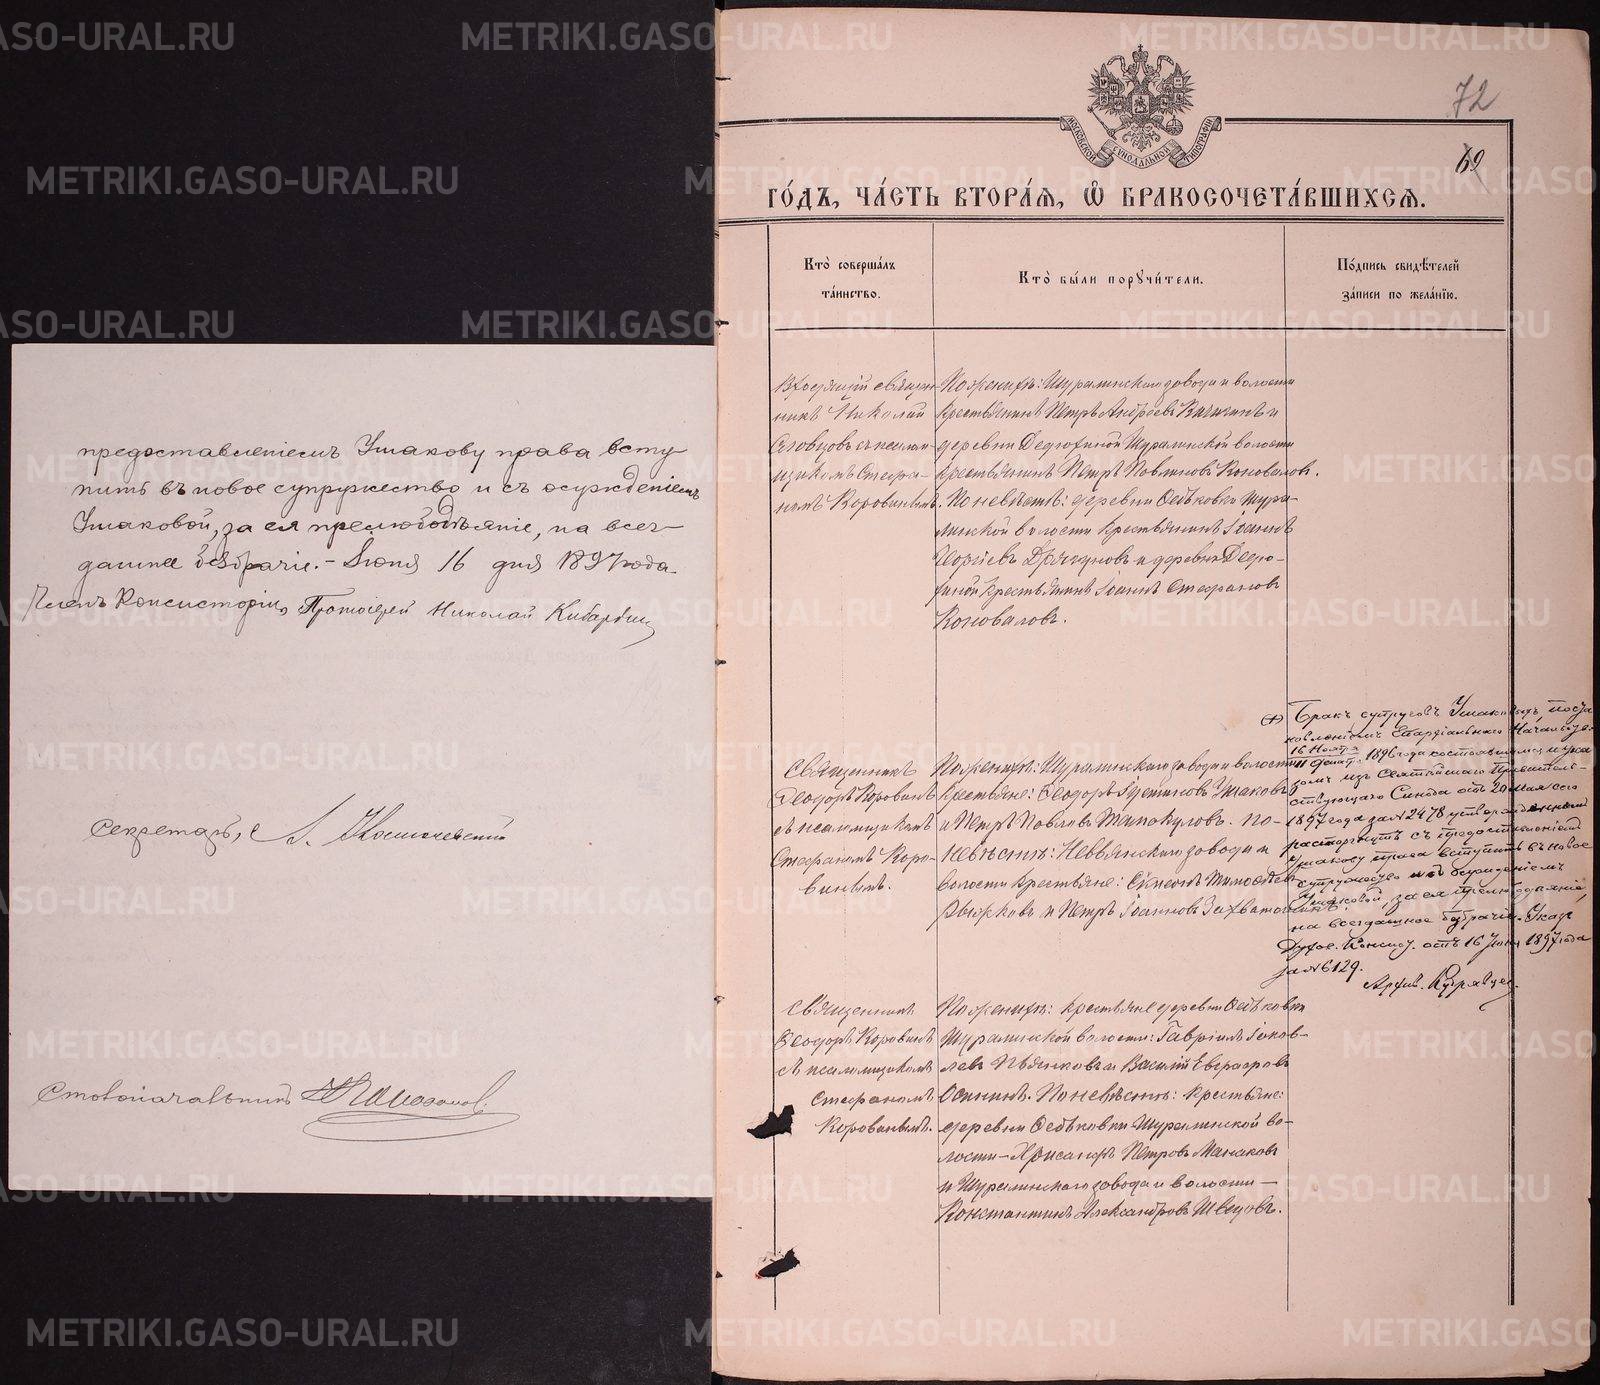 предоставленіемъ Ушакову права всту-
пить въ новое супружество и съ осужденіемъ
Ушаковой, за ея прелюбодѣяніе, на всег-
дашнее безбрачіе. - Іюня 16 дня 1897 года.
Членъ Консисторіи, Протоіерей Николай
Секретарь
Столоначальникъ
72
69
МОСКОВСКОЙ СѴНОДАЛЬНОЙ ТИПОГРАФІИ
ГО́ДЪ, ЧА́СТЬ ВТОРА́Я, Ѡ҆ БРАКОСОЧЕТА́ВШИХСЯ.
Кто̀ соверша́лъ
та́инство.
Кто̀ бы́ли порꙋчи́тели.
По́дпись свидѣ́телей
за́писи по жела́нїю.
Входящій священ-
никъ Николай
Словцовъ съ псалом-
щикомъ Стефа-
номъ Коровинымъ.
По женихѣ: Шуралинскаго завода и волости
крестьянинъ Петръ Андреевъ и
деревни Дедюхиной Шуралинской волости
крестьянинъ Петръ Павловъ Коновалов.
По невѣстѣ: деревни Обѣковки Шура-
линской волости крестьянинъ Іоаннъ
Георгіевъ и деревни Дедю-
хиной крестьянинъ Іоаннъ Стефановъ
Коноваловъ.
Священникъ
Ѳеодоръ Коровинъ
съ псаломщикомъ
Стефаномъ Коро-
винымъ.
По женихѣ: Шуралинскаго завода и волости
крестьяне: Ѳеодоръ Ушаковъ
и Петръ Павловъ. По
невѣстѣ: Невьянскаго завода и
волости крестьяне: Симеонъ Тимоѳеев
Рыжковъ и Петръ Іоанновъ
Бракъ супруговъ Ушаковыхъ, поста
новленіемъ Епархіальнаго Начальст-
16 Ноября
11 Декаб. 1896 года состоявшимся и ука
зомъ изъ Святѣйшаго Правитель-
ствующаго Синода отъ 20 мая сего
1897 года за № 2478 утвержденнымъ
расторгнутъ съ предоставленіемъ
Ушакову права вступить въ новое
супружество и съ осужденіемъ
Ушаковой, за ея прелюбодѣяніе,
на всегдашнее безбрачіе. Указ
Духов. Консист. отъ 16 Іюня 1897 года
за № 6129.
Священникъ
Ѳеодоръ Коровинъ
съ псаломщикомъ
Стефаномъ
Коровинымъ.
По женихѣ: крестьяне деревни Обѣковки
Шуралинской волости: Гавріилъ Іаков-
левъ Пьянковъ и Василій Евграфовъ
Осининъ. По невѣстѣ: крестьяне:
деревни Обѣковки Шуралинской во-
лости - Хрисанфъ Петровъ Манаковъ
и Шуралинскаго завода и волости -
Константинъ Александровъ Швецовъ.
METRIKI.GASO-URAL.RU